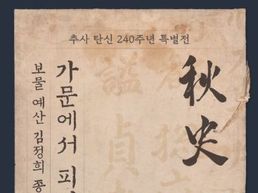 추사 탄신 240주년 특별전
秋史
가문에서 피
보물 예산 김정희 종